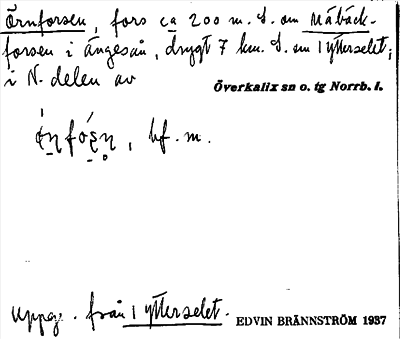 Örnforsen, fors ca 200 m. S. om Måbäck-
forsen i Ängesån, drygt 7 km. S. om Ytterselet;
i N-delen av Överkalix sn o. tg Norrb. l.
, bf. m.
Uppg. från Ytterselet. EDVIN BRÄNNSTRÖM 1937